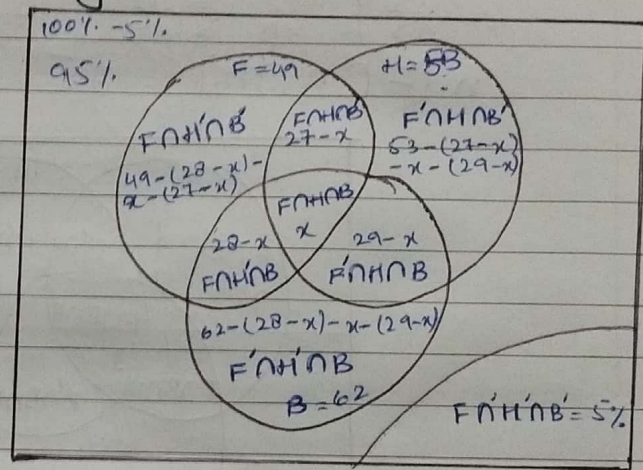 100% - 5%
95%
F = 49
H = 53
F∩H'∩B'
49-(28-x)-
x-(27-x)
F∩H∩B'
27-x
F'∩H∩B'
53-(27-x)
-x-(29-x)
F∩H∩B
x
28-x
F∩H'∩B
29-x
F'∩H∩B
62-(28-x)-x-(29-x)
F'∩H'∩B
B = 62
F'∩H'∩B' = 5%